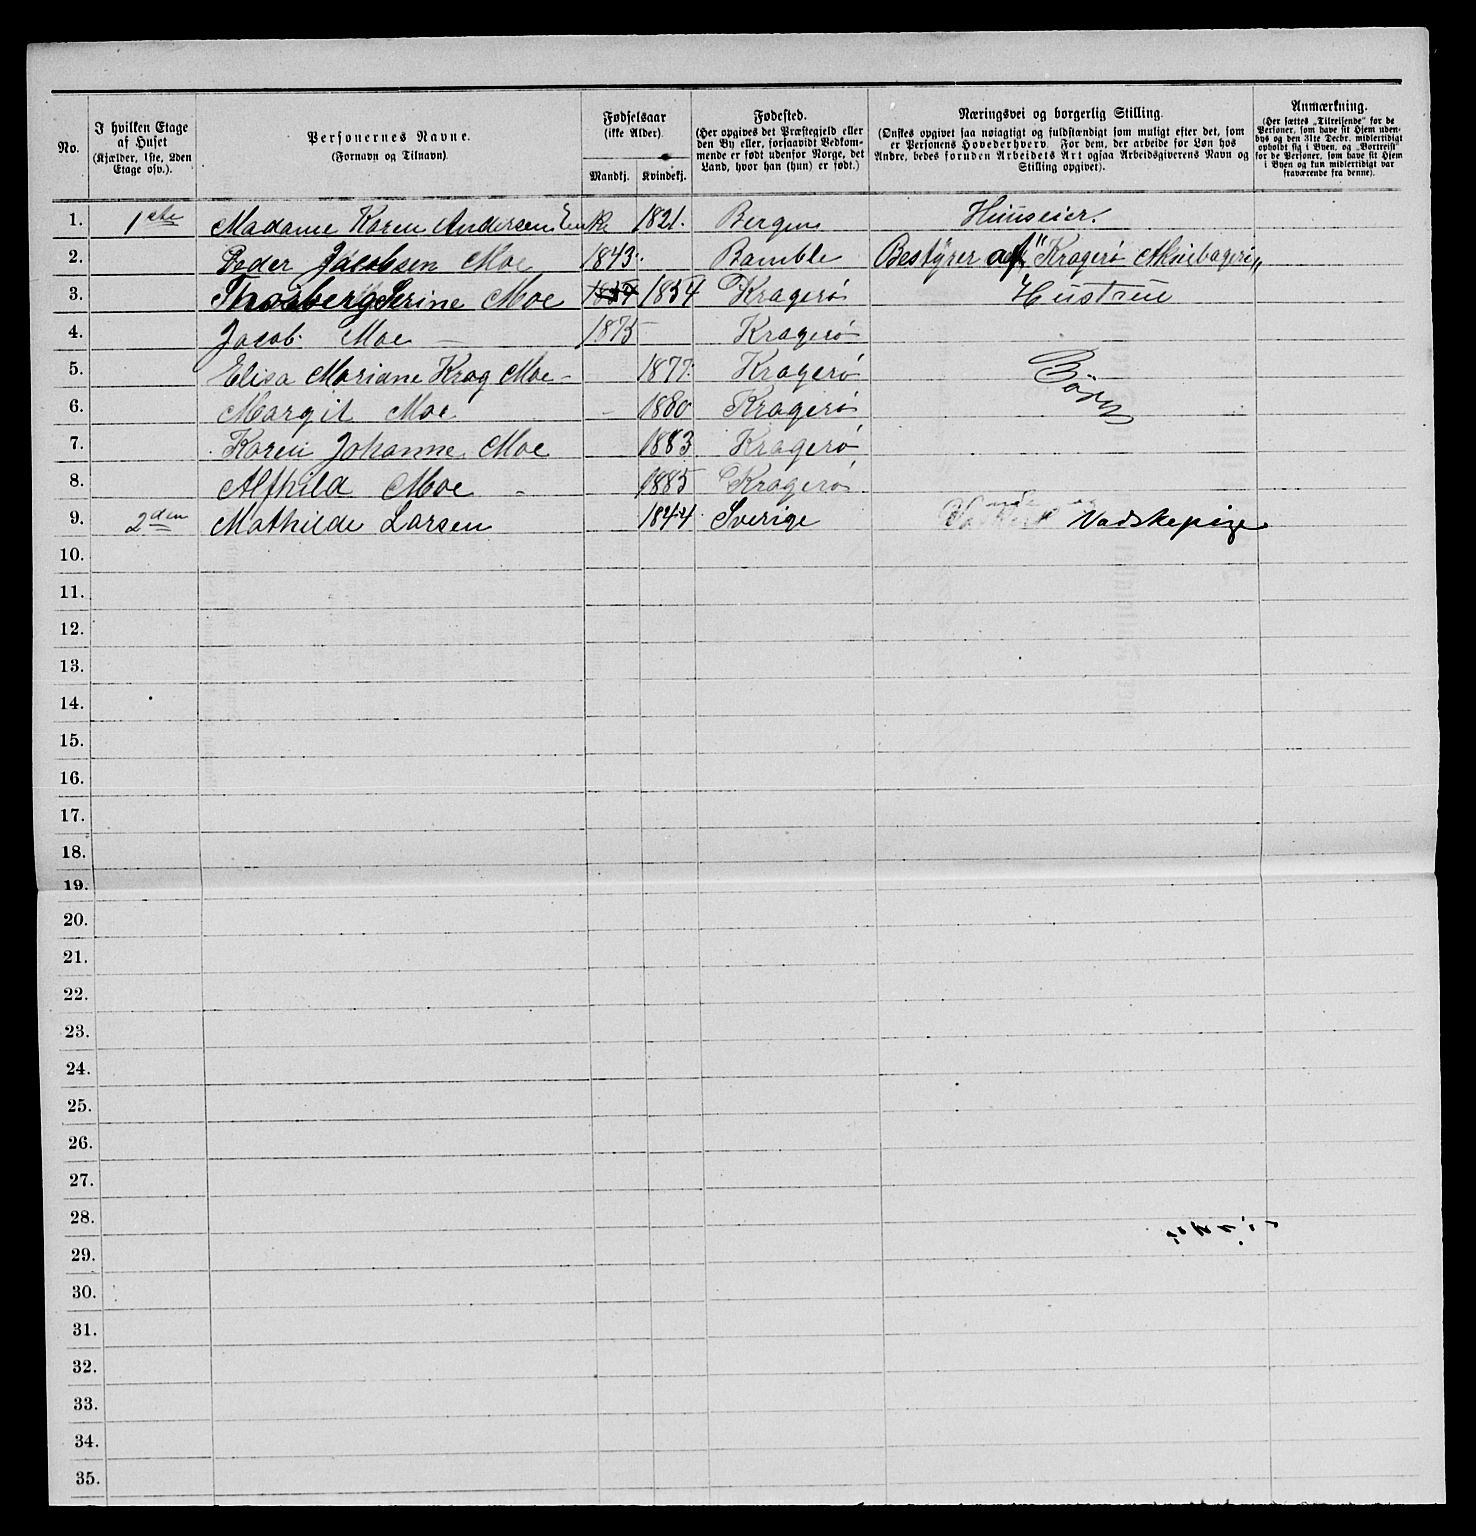 No.
I hvilken Etage af Huset (Kjælder, 1ste, 2den Etage osv.).
Personernes Navne. (Fornavn og Tilnavn).
Fødselsaar (ikke Alder).
Mandkj. Kvindekj.
Fødested. (Her opgives det Præstegjeld eller den By eller, forsaavidt Vedkommende er født udenfor Norge, det Land, hvor han (hun) er født.)
Næringsvei og borgerlig Stilling. (Ønskes opgivet saa nøiagtigt og fuldstændigt som muligt efter det, som er Personens Hovederhverv. For dem, der arbeide for Løn hos Andre, bedes foruden Arbeidets Art ogsaa Arbeidsgiverens Navn og Stilling opgivet).
Anmærkning. (Her sættes „Tilreisende“ for de Personer, som have sit Hjem udenbys og den 31te Decbr. midlertidigt opholdt sig i Byen, og „Bortreist“ for de Personer, som have sit Hjem i Byen og kun midlertidigt var fraværende fra denne).
1. 1ste Madame Karen Andersen Enke 1821. Bergen Huuseier.
2. Peder Jacobsen Moe 1843. Bamble Bestyrer af "Kragerø Maibageri"
3. Serine Moe 1854 1854 Kragerø Hustrue
4. Jacob Moe 1875 Kragerø
5. Elisa Mariane Krog Moe 1877. Kragerø Børn
6. Margit Moe 1880 Kragerø
7. Karen Johanne Moe 1883 Kragerø
8. Alfhild Moe 1885 Kragerø
9. 2den Mathilde Larsen 1844 Sverige og Vadskepige
10.
11.
12.
13.
14.
15.
16.
17.
18.
19.
20.
21.
22.
23.
24.
25.
26.
27.
28.
29.
30.
31.
32.
33.
34.
35.